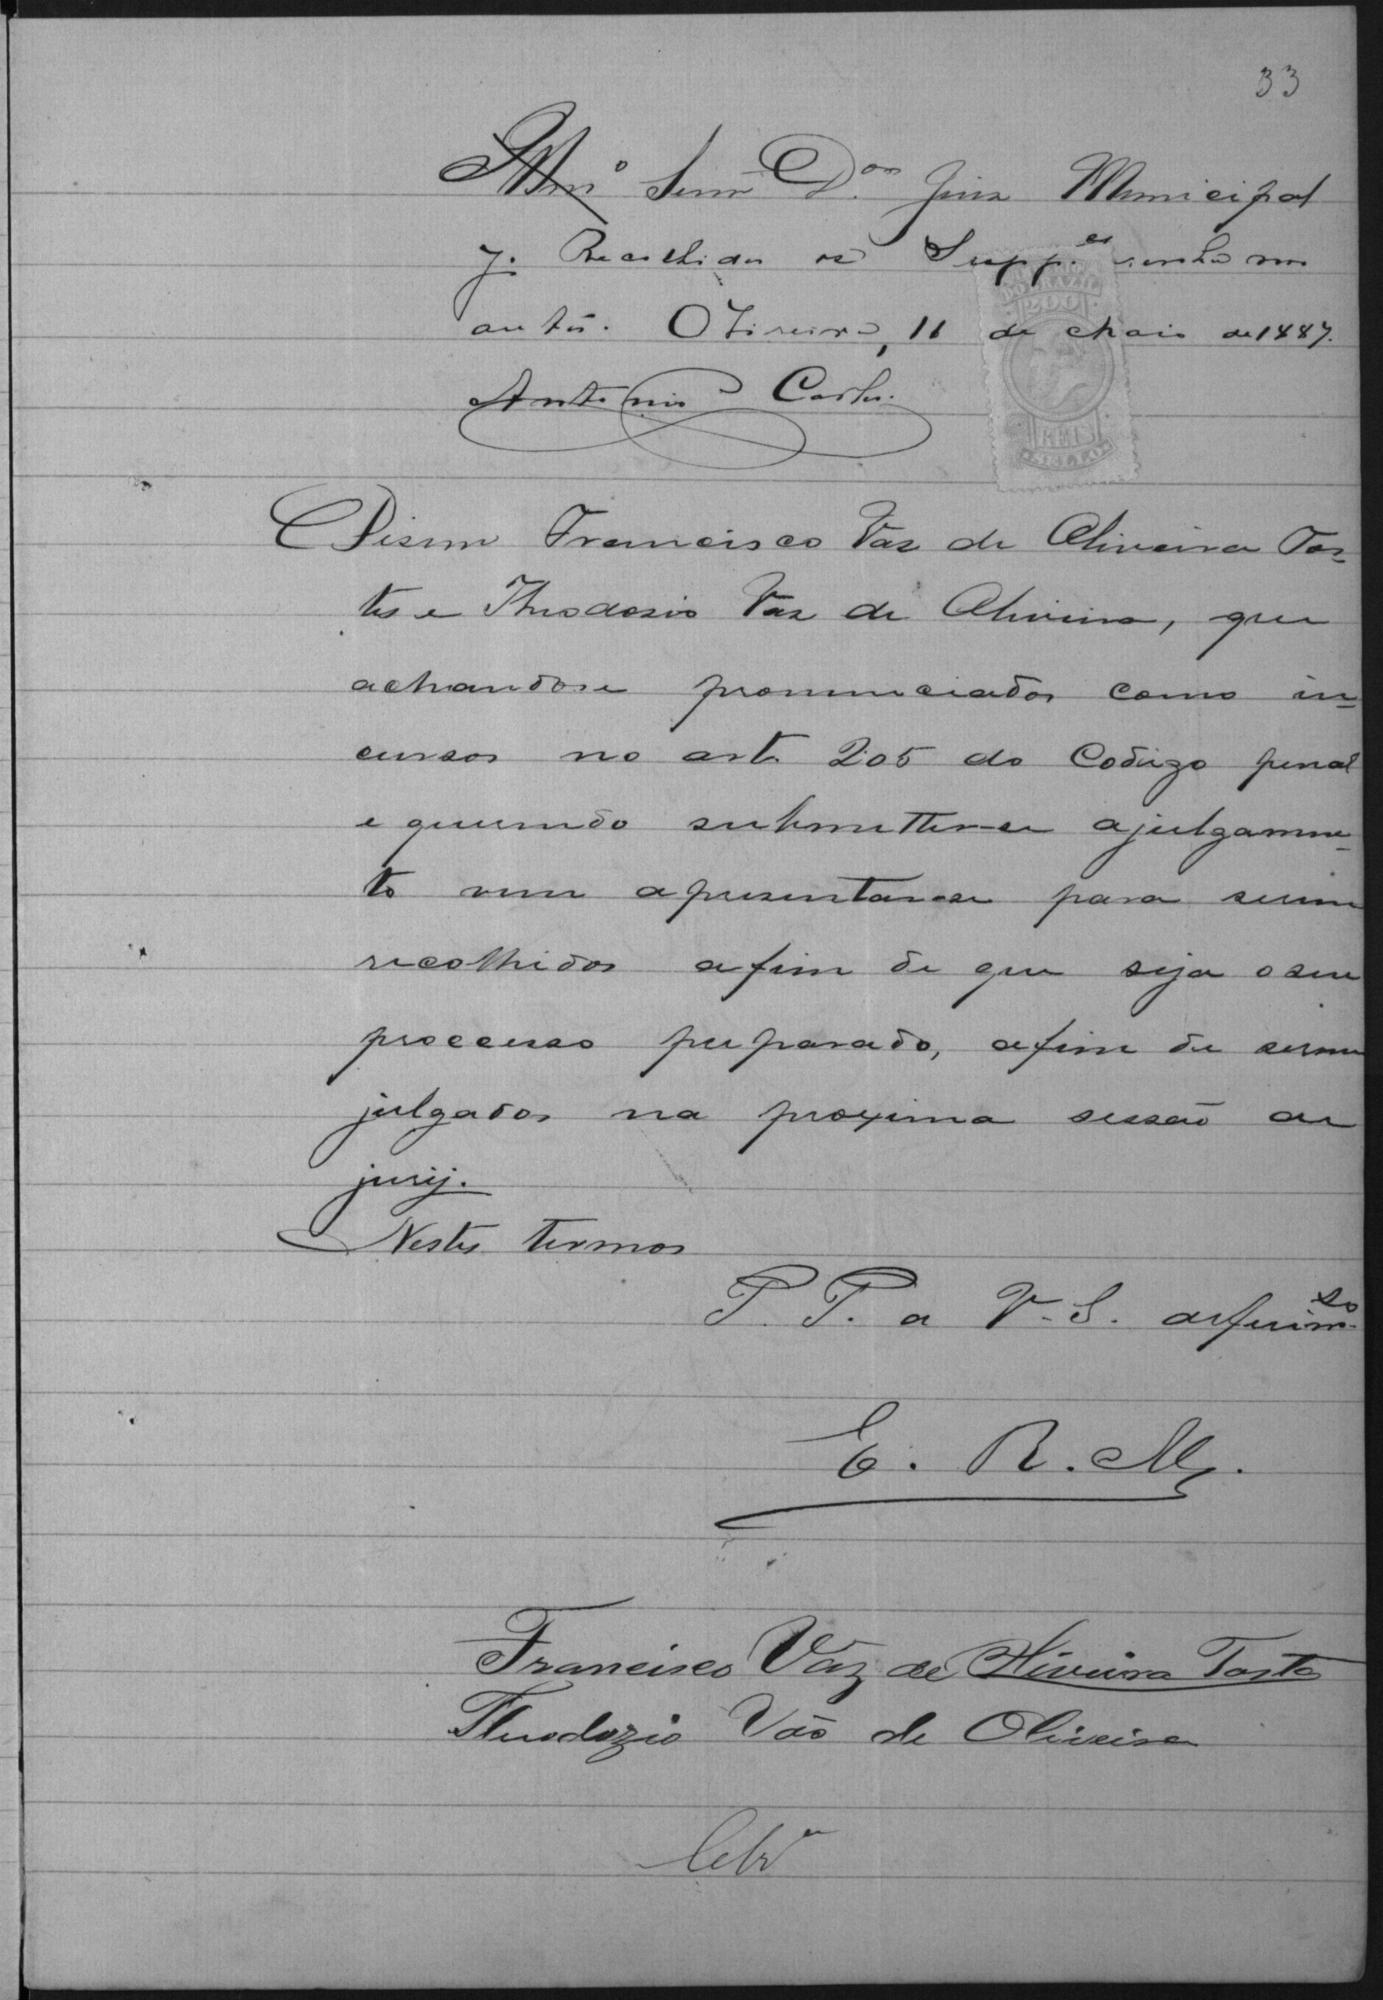 33
Illmº Senr. D.or Juiz Municipal
J. Recolhidos os Supp.es venhão nos
autos. Oliveira, 11 de Maio de 1887.
DO BRAZIL
200
REIS
SELLO
Antonio Carlos.
Disem Francisco Vaz de Oliveira Tos-
tes e Theodosio Vaz de Oliveira, que
achandose pronunciados como in-
cursos no art. 205 do Codigo penal
e querendo submetter-se a julgamen-
to vem apresentar-se para serem
recolhidos afim de que seja o seu
processo preparado, afim de serem
julgados na proxima sessão de
jury.
Nestes termos
P. P. a V. S. deferim.to
E. R. M.
Francisco Vaz de Oliveira Tostes
Theodozio Vas de Oliveira